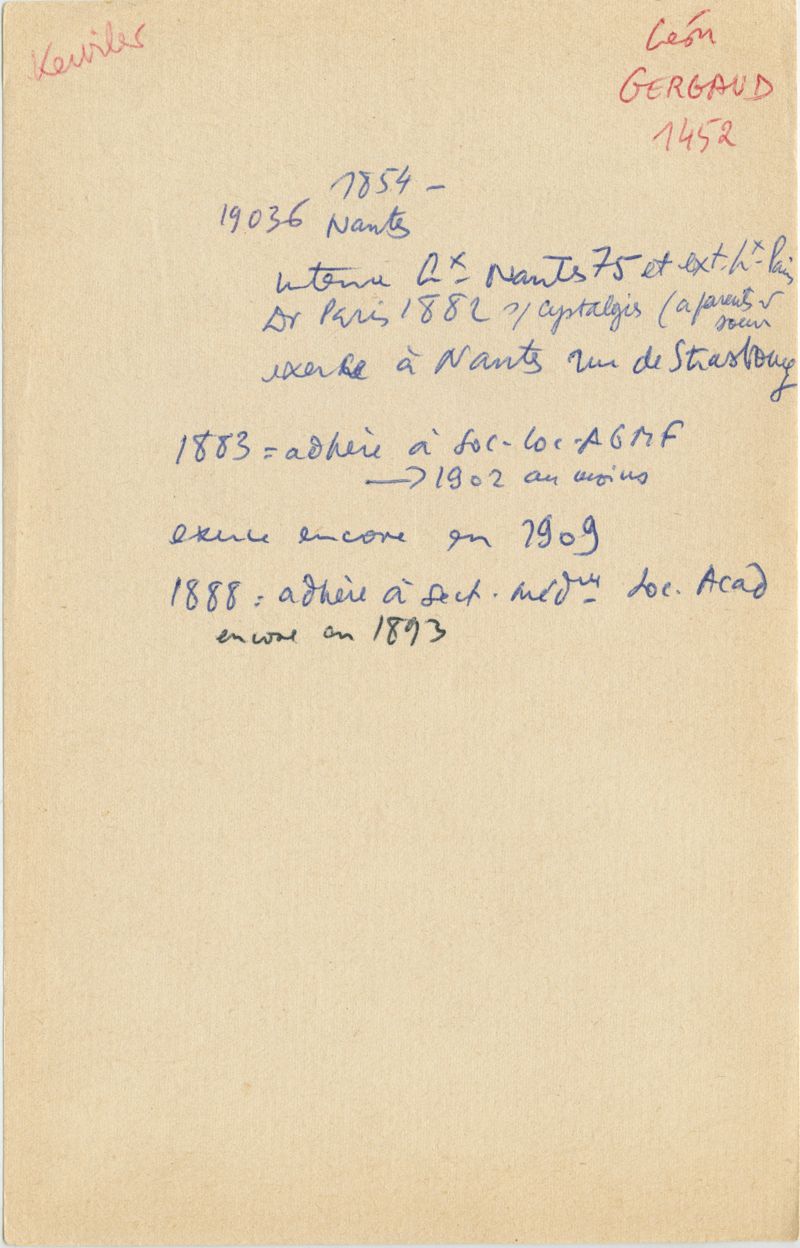 Kerviler
Léon
GERGAUD
1452
1854 -
19036 Nantes
interne hx Nantes 75 et ext. hx Paris
Dr Paris 1882 s/ cystalgies (a parents et
soeur
exerce à Nantes rue de Strasbourg
1883 = adhère à Soc. loc. AGMF
—> 1902 au moins
exerce encore en 1909
1888 = adhère à Sect. Méd. Soc. Acad
encore en 1893